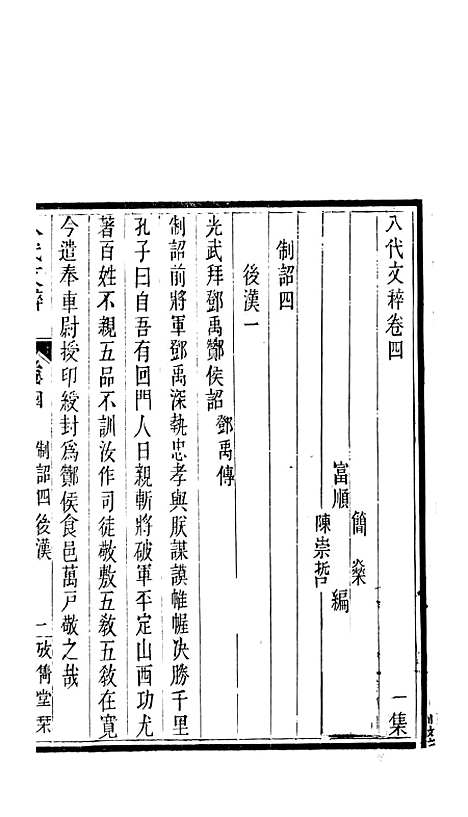 八代文粹卷四　一集
簡燊
富順　編
陳崇哲
制詔四
後漢一
光武拜鄧禹酇侯詔　鄧禹傳
制詔前將軍鄧禹深執忠孝與朕謀謨帷幄决勝千里
孔子曰自吾有回門人日親斬將破軍平定山西功尤
著百姓不親五品不訓汝作司徒敬敷五敎五敎在寬
今遣奉車尉授印綬封爲酇侯食邑萬戸敬之哉
八代文粹　卷四　制詔四後漢　一　攷雋堂栞